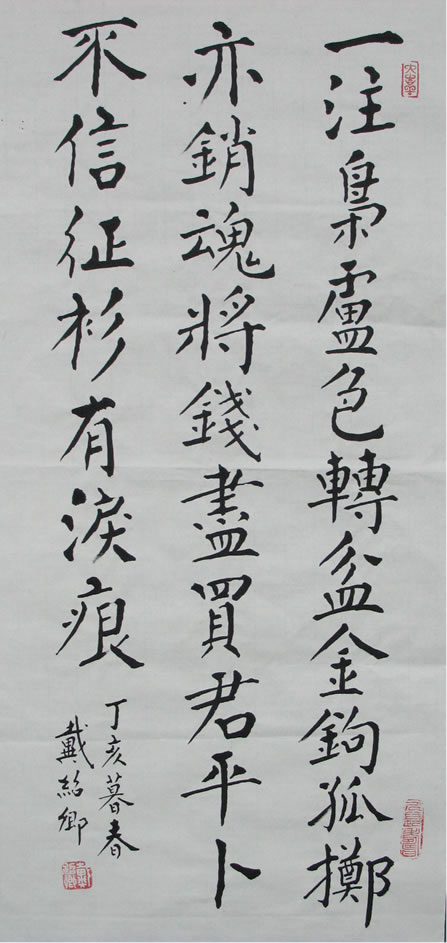 一注梟盧色轉盆金鉤孤擲
亦銷魂將錢盡買君平卜
不信征衫有淚痕
丁亥暮春
戴紹鄉